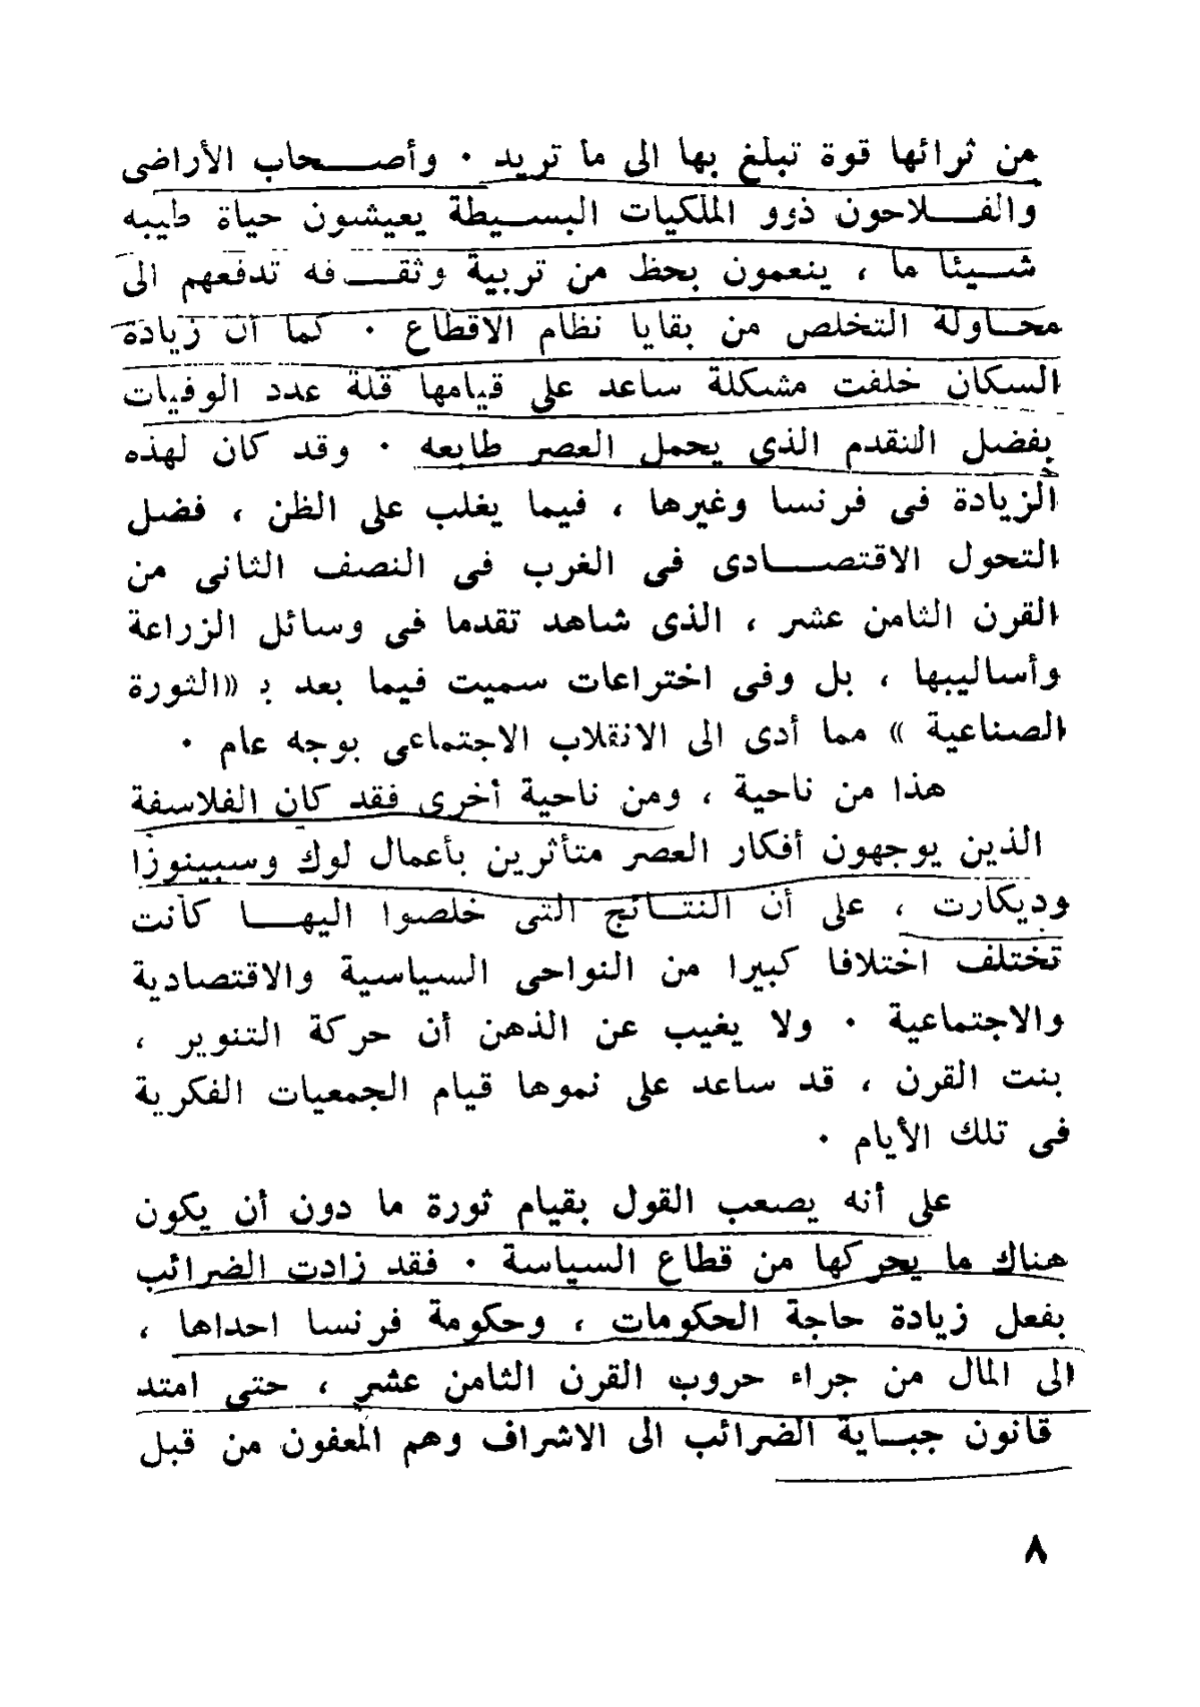 من ثرائها قوة تبلغ بها الى ما تريد ٠ وأصحاب الأراضى
والفلاحون ذوو الملكيات البسيطة يعيشون حياة طيبه
شيئا ما ، ينعمون بحظ من تربية وثقافه تدفعهم الى
محاولة التخلص من بقايا نظام الاقطاع ٠ كما أن زيادة
السكان خلفت مشكلة ساعد على قيامها قلة عدد الوفيات
بفضل التقدم الذى يحمل العصر طابعه ٠ وقد كان لهذه
الزيادة فى فرنسا وغيرها ، فيما يغلب على الظن ، فضل
التحول الاقتصادى فى الغرب فى النصف الثانى من
القرن الثامن عشر ، الذى شاهد تقدما فى وسائل الزراعة
وأساليبها ، بل وفى اختراعات سميت فيما بعد بـ «الثورة
الصناعية » مما أدى الى الانقلاب الاجتماعى بوجه عام ٠
هذا من ناحية ، ومن ناحية أخرى فقد كان الفلاسفة
الذين يوجهون أفكار العصر متأثرين بأعمال لوك وسبينوزا
وديكارت ، على أن النتائج التى خلصوا اليها كانت
تختلف اختلافا كبيرا من النواحى السياسية والاقتصادية
والاجتماعية ٠ ولا يغيب عن الذهن أن حركة التنوير ،
بنت القرن ، قد ساعد على نموها قيام الجمعيات الفكرية
فى تلك الأيام ٠
على أنه يصعب القول بقيام ثورة ما دون أن يكون
هناك ما يحركها من قطاع السياسة ٠ فقد زادت الضرائب
بفعل زيادة حاجة الحكومات ، وحكومة فرنسا احداها ،
الى المال من جراء حروب القرن الثامن عشر ، حتى امتد
قانون جباية الضرائب الى الاشراف وهم المعفون من قبل
٨